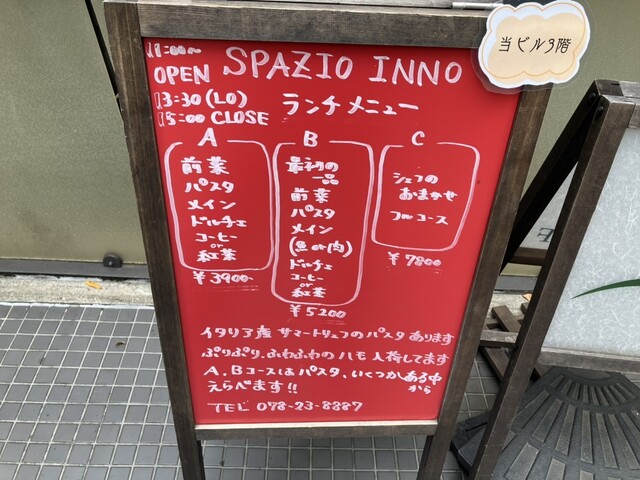 当ビル3階
11:00〜
OPEN
13:30(LO)
15:00 CLOSE
SPAZIO INNO
ランチメニュー
A
前菜
パスタ
メイン
ドルチェ
コーヒー
or
紅茶
¥3900-
B
最初の
一品
前菜
パスタ
メイン
(魚or肉)
ドルチェ
コーヒー
or
紅茶
¥5200
C
シェフの
おまかせ
フルコース
¥7800
イタリア産 サマートリュフのパスタあります
ぷりぷり、ふわふわのハモ入荷してます
A、Bコースはパスタ、いくつかある中
から
えらべます!!
TEL 078-23-8887